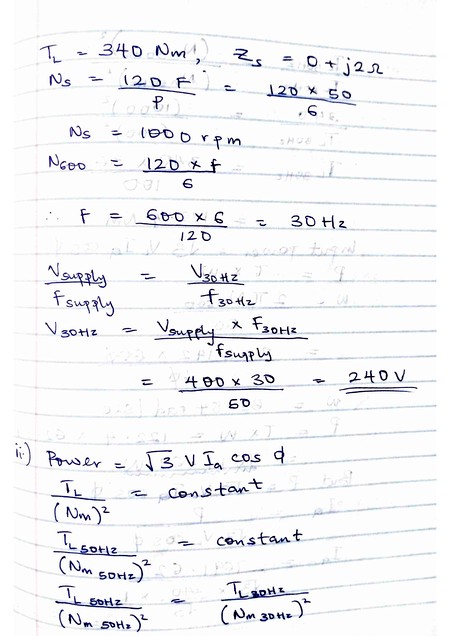 T_L = 340 Nm, Z_s = 0 + j2Ω
N_s = 120 F / P = 120 × 50 / 6
N_s = 1000 rpm
N_600 = 120 × f / 6
∴ F = 600 × 6 / 120 = 30 Hz
V_supply / F_supply = V_30Hz / f_30Hz
V_30Hz = V_supply × F_30Hz / f_supply
= 400 × 30 / 50 = 240 V
ii) Power = √3 V I_a cos φ
T_L / (Nm)² = constant
T_L 50Hz / (N_m 50Hz)² = constant
T_L 50Hz / (N_m 50Hz)² = T_L 30Hz / (N_m 30Hz)²